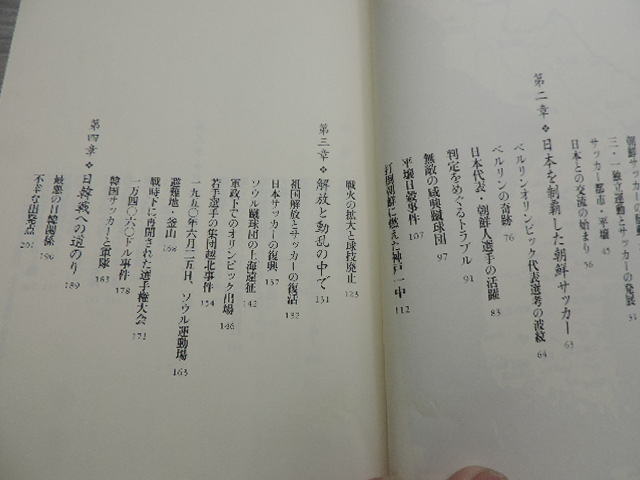 朝鮮サッカーの発展 31
三・一独立運動と
サッカー都市・平壌 45
日本との交流の始まり 56
第二章❖日本を制覇した朝鮮サッカー 63
ベルリンオリンピック代表選考の波紋 64
ベルリンの奇跡 76
日本代表・朝鮮人選手の活躍 83
判定をめぐるトラブル 91
無敵の咸興蹴球団 97
平壌日穀事件 107
打倒朝鮮に燃えた神戸一中 112
戦火の拡大と球技廃止 123
第三章❖解放と動乱の中で 131
祖国解放とサッカーの復活 132
日本サッカーの復興 137
ソウル蹴球団の上海遠征 142
軍政下でのオリンピック出場 146
若手選手の集団越北事件 154
一九五〇年六月二五日、ソウル運動場 163
避難地・釜山 168
戦時下に再開された選手権大会 172
一万四〇六〇ドル事件 178
韓国サッカーと軍隊 183
第四章❖日韓戦への道のり 189
最悪の日韓関係 190
不幸な出発点 201